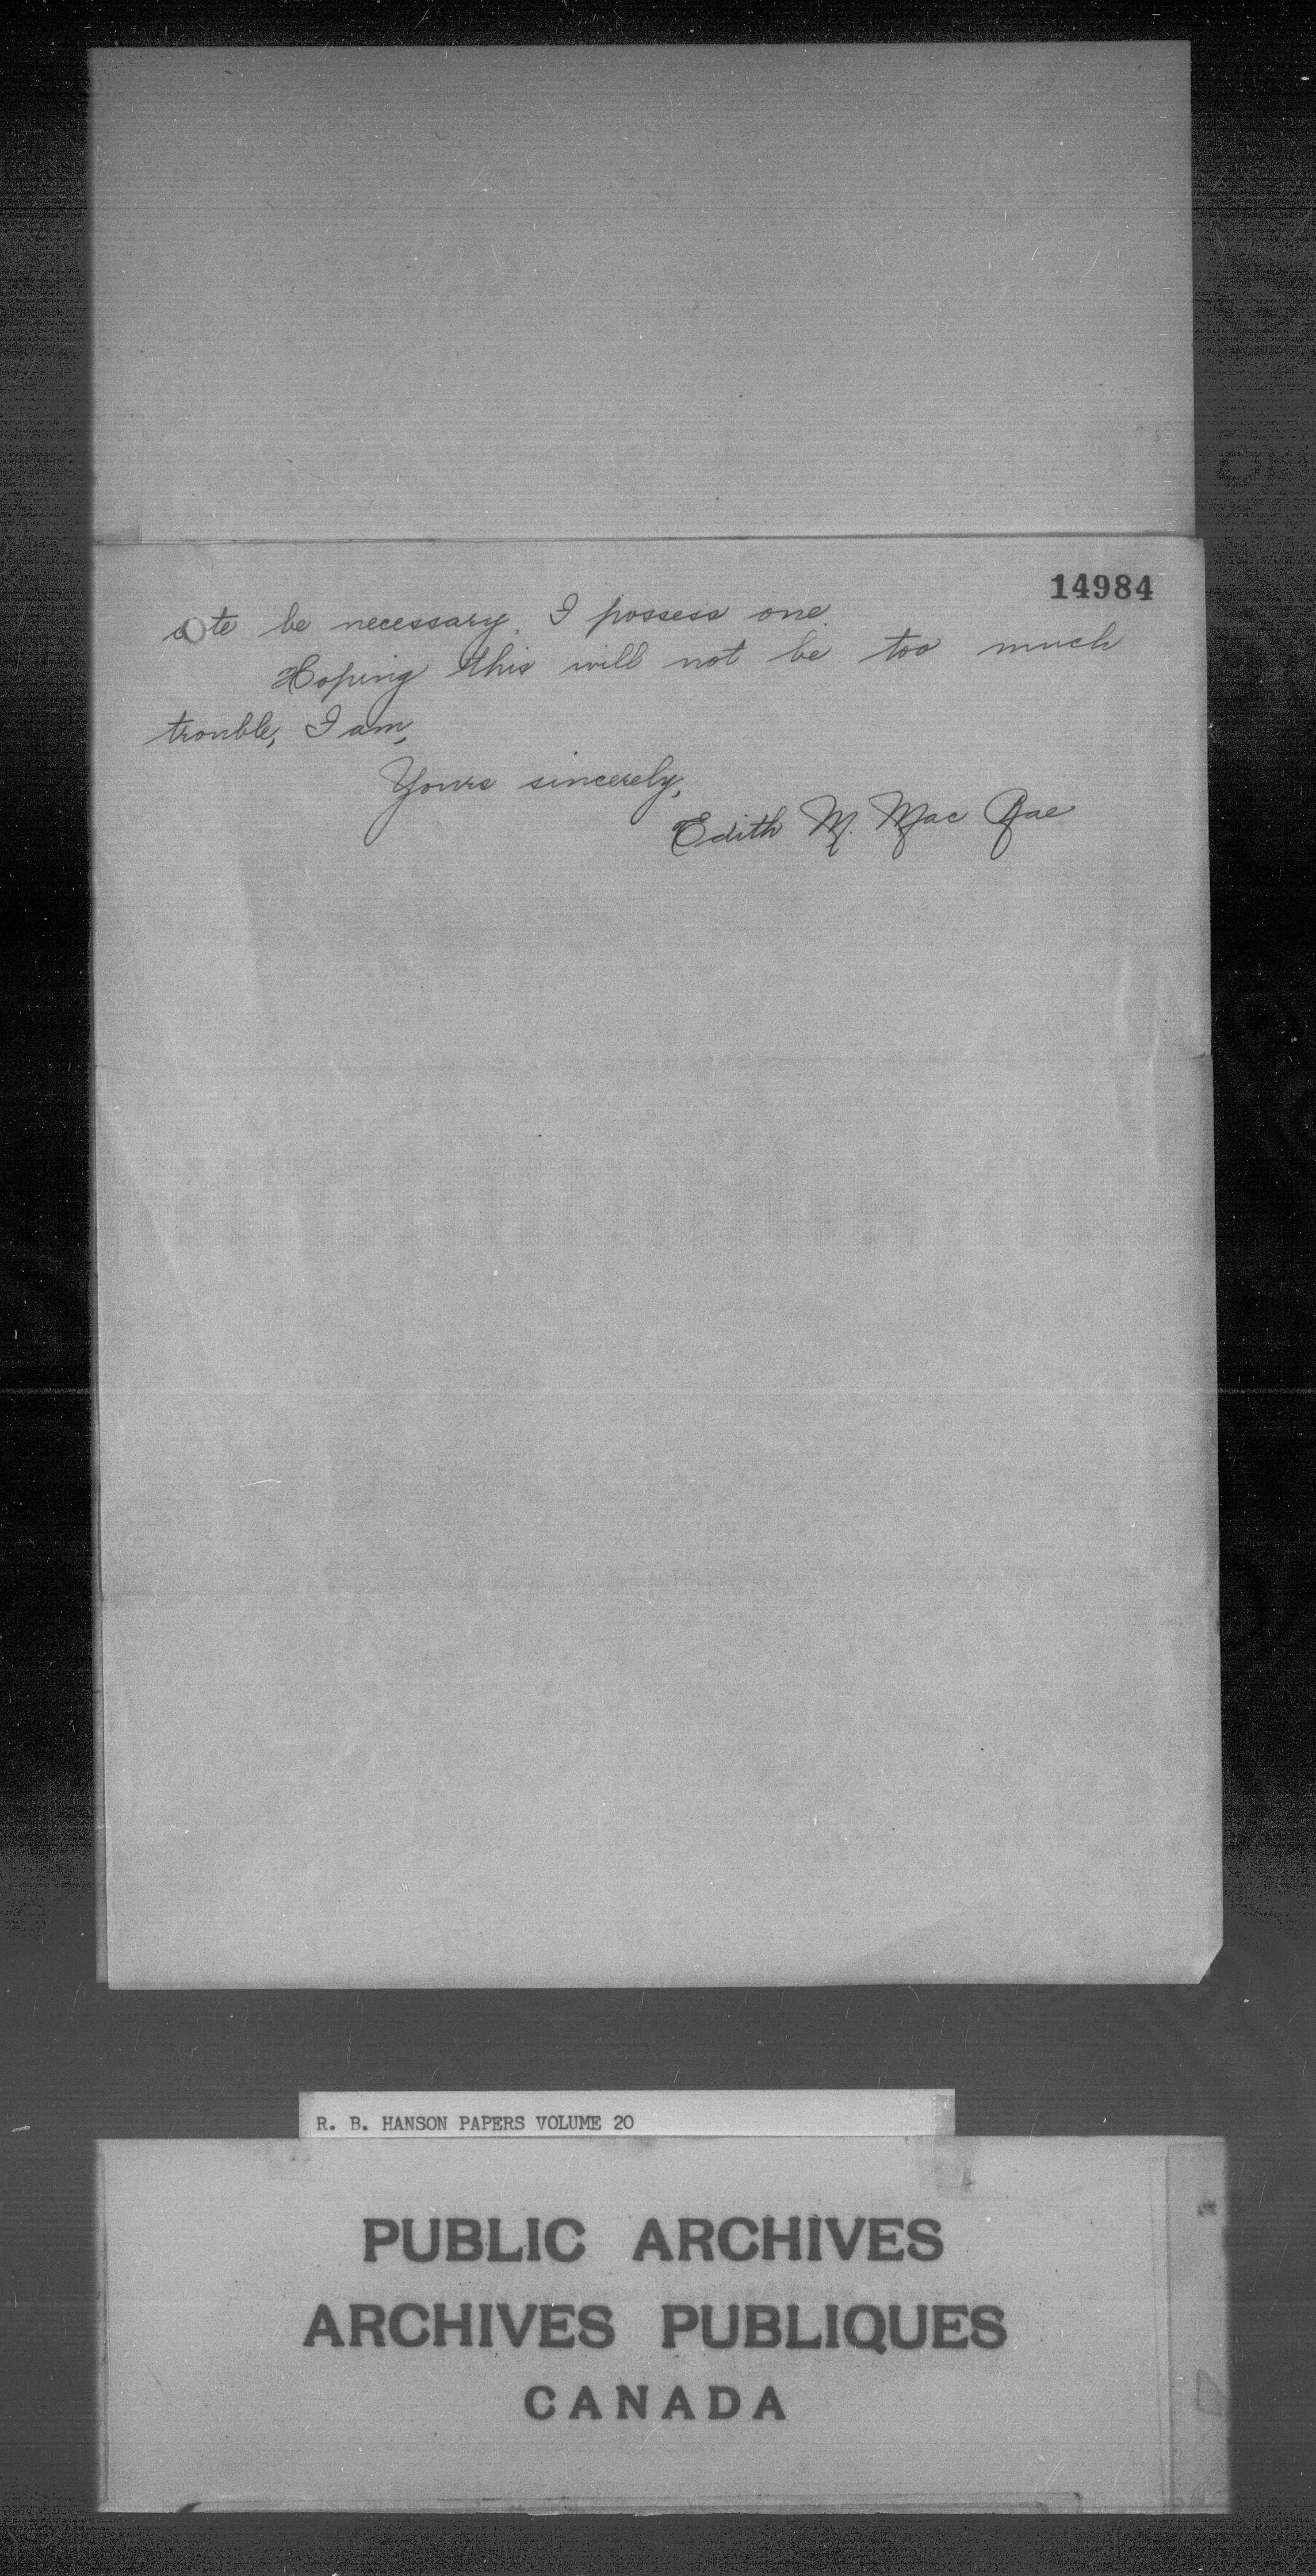 14984
te be necessary. I possess one.
Hoping this will not be too much
trouble, I am,
Yours sincerely,
Edith M. Mac Rae
R. B. HANSON PAPERS VOLUME 20
PUBLIC ARCHIVES
ARCHIVES PUBLIQUES
CANADA